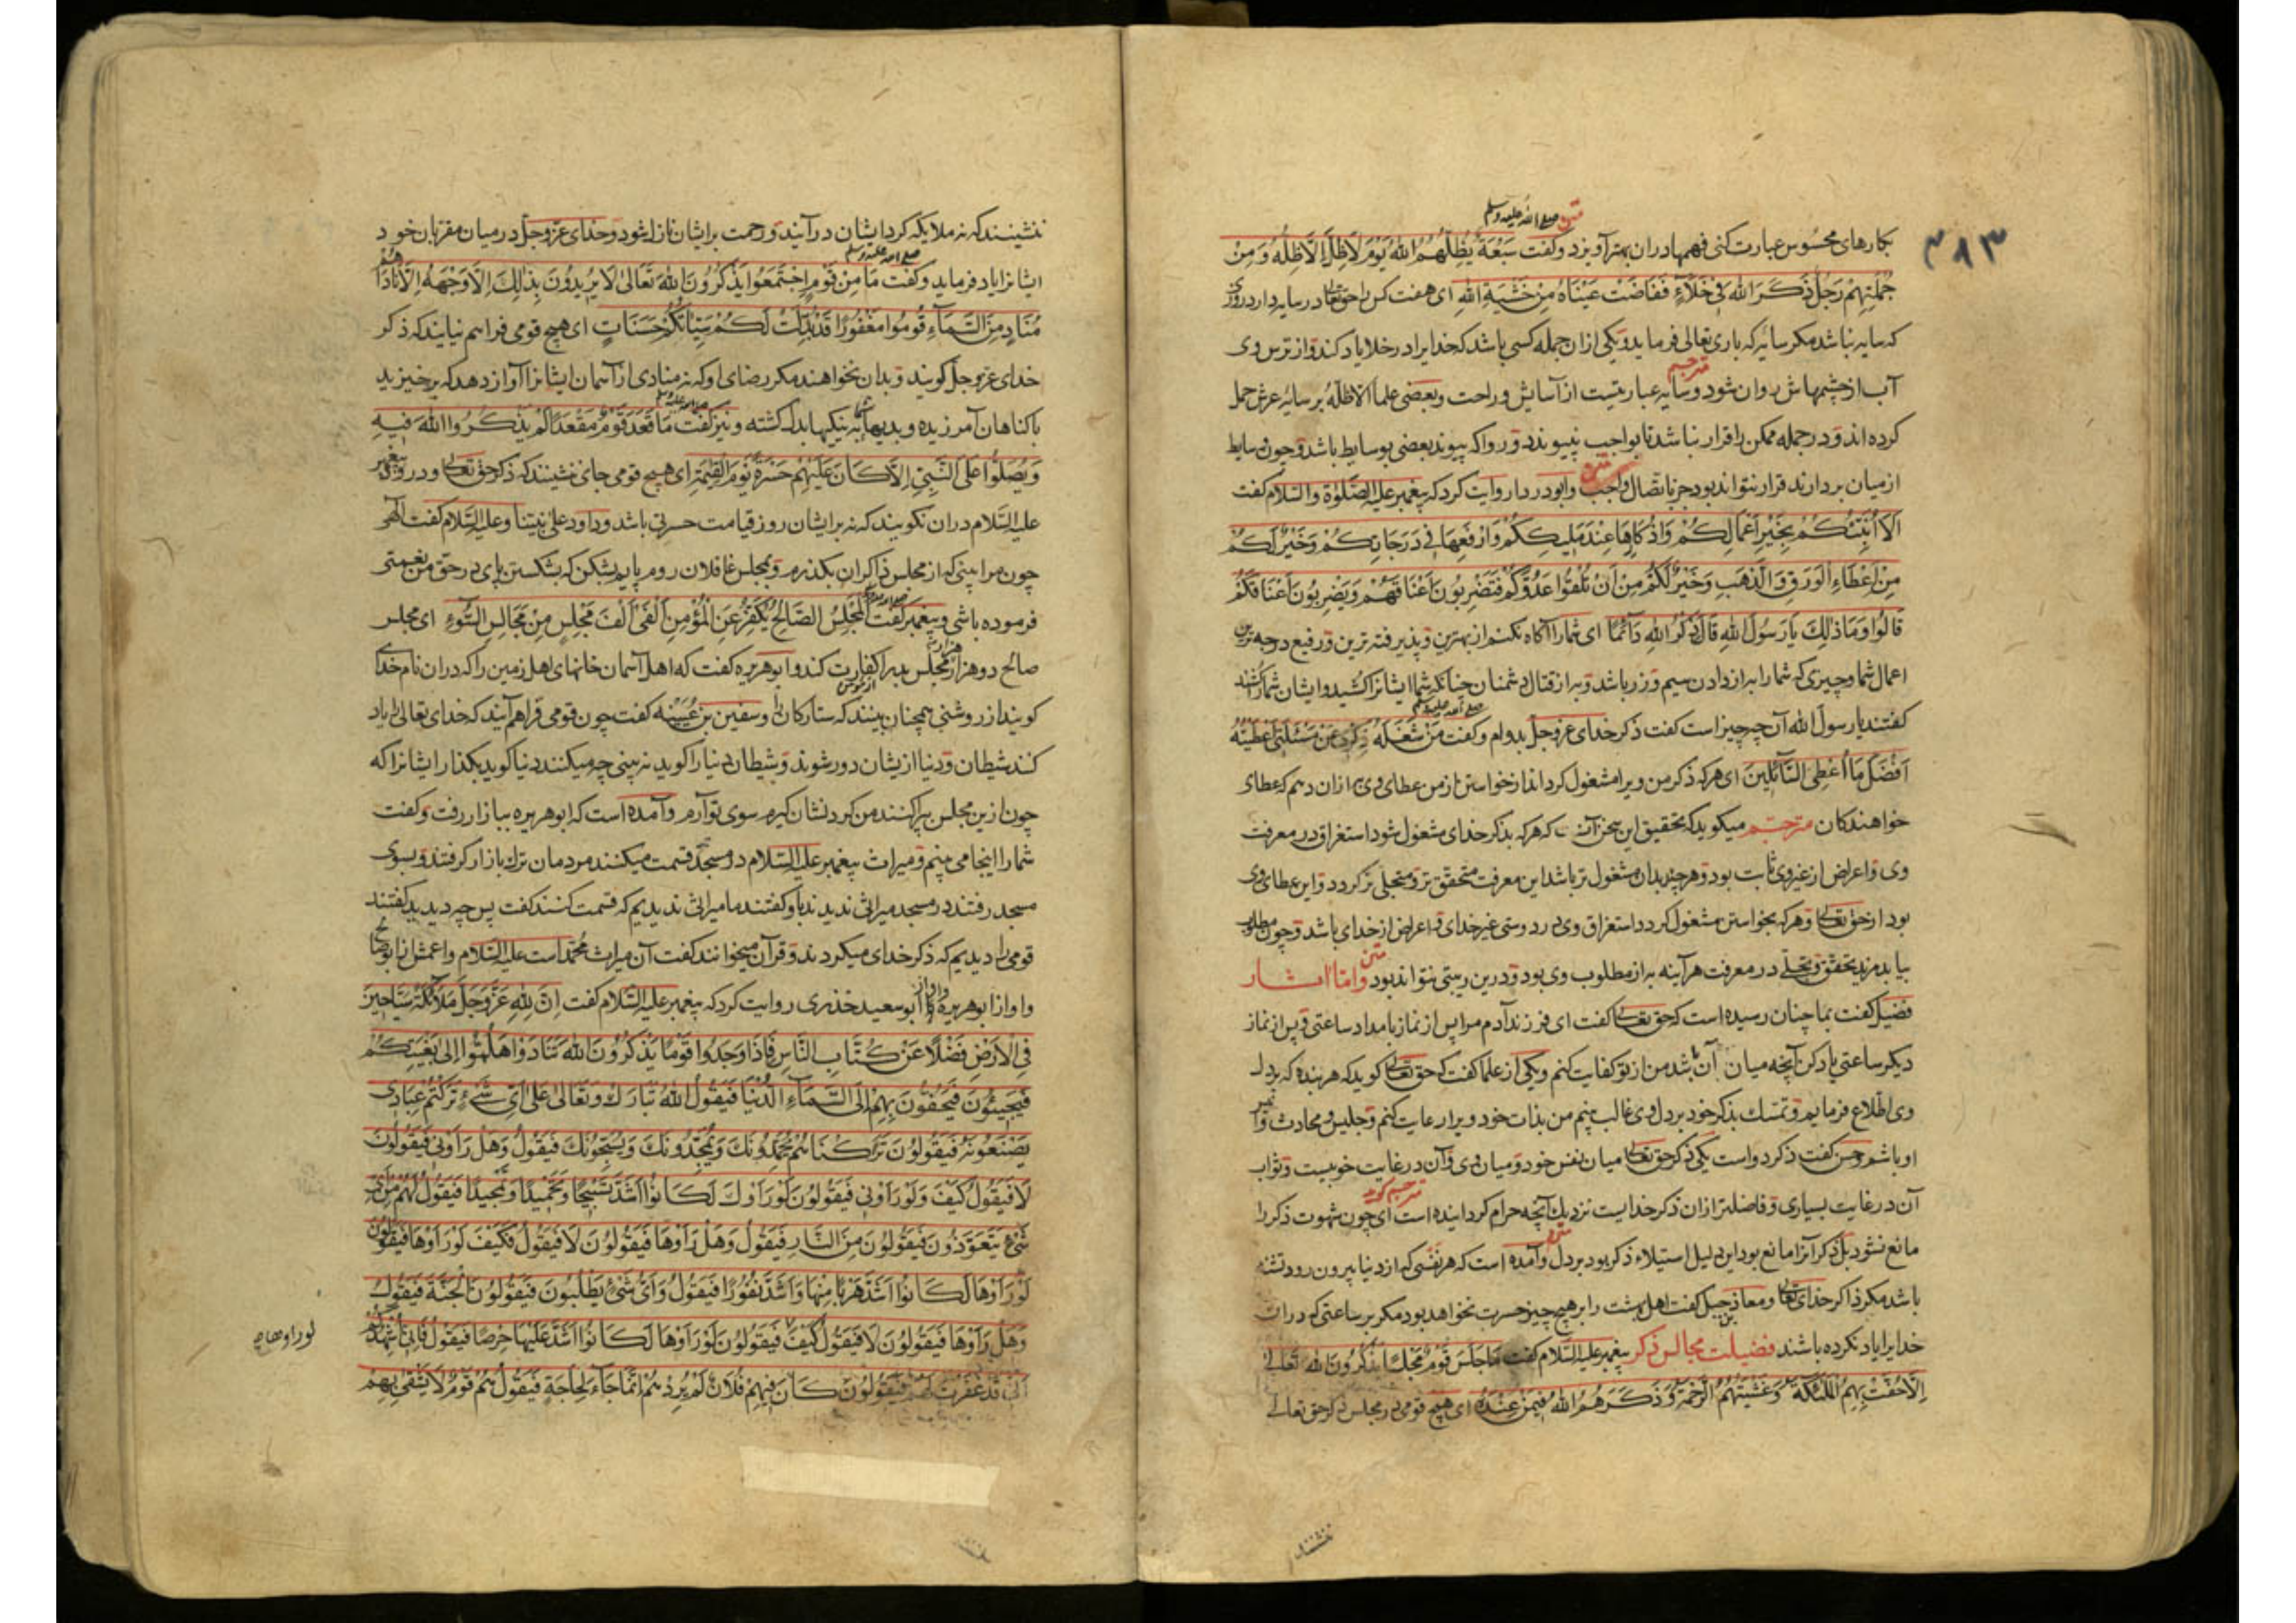 ۴۸۳
متن صلی الله علیه وسلم
بکارهای محسوس عبارت کنی فهمها دران بهتر آویزد وکفت سَبْعَةٌ یُظِلُّهُمُ اللهُ یَوْمَ لَاظِلَّ اِلَّا ظِلُّهُ وَمِنْ
جُمْلَتِهِمْ رَجُلٌ ذَکَرَ اللهَ فِی خَلَاءٍ فَفَاضَتْ عَیْنَاهُ مِنْ خَشْیَةِ اللهِ ای هفت کس را حق تعالی در سایه دارد روزی
که سایه نباشد مکر سایه که باری تعالی فرماید ویکی ازان جمله کسی باشد که خدایرا در خلا یاد کند واز ترس وی
آب از چشمهاش روان شود مترجم وسایه عبارتیست از آسایش وراحت وبعضی علما الاظله بر سایه عرش حمل
کرده اند ودر جمله ممکن را قرار نباشد تا بواجب نپیوندد وروا که پیوند بعضی بوسایط باشد وچون وسایط
از میان بردارند قرار نتواند بود جز باتصال واجب متن وابودردا روایت کرد که پیغمبر علیه الصلوة والسلام کفت
اَلَا اُنَبِّئُکُمْ بِخَیْرِ اَعْمَالِکُمْ وَاَزْکَاهَا عِنْدَ مَلِیکِکُمْ وَاَرْفَعِهَا فِی دَرَجَاتِکُمْ وَخَیْرٌ لَکُمْ
مِنْ اِعْطَاءِ الْوَرِقِ وَالذَّهَبِ وَخَیْرٌ لَکُمْ مِنْ اَنْ تَلْقَوْا عَدُوَّکُمْ فَتَضْرِبُونَ اَعْنَاقَهُمْ وَیَضْرِبُونَ اَعْنَاقَکُمْ
قَالُوا وَمَا ذٰلِکَ یَا رَسُولَ اللهِ قَالَ ذِکْرُ اللهِ دَائِمًا ای شما را آکاه نکنم از بهترین وپذیرفته ترین ورفیع درجه ترین
اعمال شما وچیزی که شما را به از دادن سیم وزر باشد وبه از قتال دشمنان چنانکه شما ایشانرا کشید وایشان شما را کشند
کفتند یا رسول الله آن چه چیز است کفت ذکر خدای عزوجل بدوام وکفت صلی الله علیه وسلم مَنْ شَغَلَهُ ذِکْرِی عَنْ مَسْئَلَتِی اَعْطَیْتُهُ
اَفْضَلَ مَا اُعْطِی السَّائِلِینَ ای هرکه ذکر من ویرا مشغول کرداند از خواستن از من عطای وی به ازان دهم که عطای
خواهندکان مترجم میکوید که تحقیق این سخن آنست که هرکه بذکر خدای مشغول شود استغراق در معرفت
وی واعراض از غیر وی ثابت بود وهرچند بدان مشغول تر باشد این معرفت متحقق تر ومتجلی تر کردد واین عطای وی
بود از حق تعالی وهرکه بخواستن مشغول کردد استغراق وی در دوستی غیر خدای واعراض از خدای باشد وچون مطلوب
بیابد مزید تحقق وتجلی در معرفت هرآینه به از مطلوب وی بود ودرین ریبتی نتواند بود متن واما آثار
فضیل کفت بما چنان رسیده است که حق تعالی کفت ای فرزند آدم مرا پس از نماز بامداد ساعتی وپس از نماز
دیکر ساعتی یاد کن آنچه میان آن باشد من از تو کفایت کنم ویکی از علما کفت که حق تعالی کوید که هر بنده که بر دل
وی اطلاع فرمایم وتمسک بذکر خود بر دل وی غالب بینم من بذات خود ویرا رعایت کنم وجلیس ومحادث وانیس
او باشم وحسن کفت ذکر دو است یکی ذکر حق تعالی میان نفس خود ومیان وی وآن در غایت خوبیست وثواب
آن در غایت بسیاری وفاضلتر ازان ذکر خدایست نزدیک آنچه حرام کردانیده است مترجم کوید ای چون شهوت ذکر را
مانع نشود بل ذکر آنرا مانع بود این دلیل استیلاء ذکر بود بر دل متن وآمده است که هر نفسی که از دنیا بیرون رود تشنه
باشد مکر ذاکر خدای تعالی ومعاذ بن جبل کفت اهل بهشت را بر هیچ چیز حسرت نخواهد بود مکر بر ساعتی که دران
خدایرا یاد نکرده باشند فضیلت مجالس ذکر پیغمبر علیه السلام کفت مَا جَلَسَ قَوْمٌ مَجْلِسًا یَذْکُرُونَ اللهَ تَعَالٰی
اِلَّا حَفَّتْ بِهِمُ الْمَلٰئِکَةُ وَغَشِیَتْهُمُ الرَّحْمَةُ وَذَکَرَهُمُ اللهُ فِیمَنْ عِنْدَهُ ای هیچ قومی در مجلس ذکر حق تعالی
ننشینند
ننشینند که نه ملایکه کرد ایشان درآیند ورحمت بر ایشان نازل شود وخدای عزوجل در میان مقربان خود
ایشانرا یاد فرماید وکفت صلی الله علیه وسلم مَا مِنْ قَوْمٍ اِجْتَمَعُوا یَذْکُرُونَ اللهَ تَعَالٰی لَا یُرِیدُونَ بِذٰلِکَ اِلَّا وَجْهَهُ اِلَّا نَادَاهُمْ
مُنَادٍ مِنَ السَّمَاءِ قُومُوا مَغْفُورًا قَدْ بُدِّلَتْ لَکُمْ سَیِّئَاتُکُمْ حَسَنَاتٍ ای هیچ قومی فراهم نیایند که ذکر
خدای عزوجل کویند وبدان نخواهند مکر رضای او که نه منادی از آسمان ایشانرا آواز دهد که برخیزید
با کناهان آمرزیده وبدیهای شما به نیکیها بدل کشته ونیز کفت صلی الله علیه وسلم مَا قَعَدَ قَوْمٌ مَقْعَدًا لَمْ یَذْکُرُوا اللهَ فِیهِ
وَیُصَلُّوا عَلَی النَّبِیِّ اِلَّا کَانَ عَلَیْهِمْ حَسْرَةً یَوْمَ الْقِیٰمَةِ ای هیچ قومی جای ننشینند که ذکر حق تعالی ودرود پیغمبر
علیه السلام دران نکویند که نه بر ایشان روز قیامت حسرتی باشد وداود علی نبینا وعلیه السلام کفت الهی
چون مرا بینی که از مجلس ذاکران بکذرم وبمجلس غافلان روم پایم بشکن که بشکستن پای در حق من نعمتی
فرموده باشی وپیغمبر کفت صلی الله علیه وسلم اَلْمَجْلِسُ الصَّالِحُ یُکَفِّرُ عَنِ الْمُؤْمِنِ اَلْفَیْ اَلْفَ مَجْلِسٍ مِنْ مَجَالِسِ السُّوْءِ ای مجلس
صالح دو هزار هزار مجلس بد را از مؤمن کفارت کند وابوهریره کفت که اهل آسمان خانهای اهل زمین را که دران نام خدای
کویند از روشنی همچنان بینند که ستارکان را وسفین بن عُیَیْنه کفت چون قومی فراهم آیند که خدای تعالی را یاد
کنند شیطان ودنیا ازیشان دور شوند وشیطان دنیا را کوید نه بینی چه میکنند دنیا کوید بکذار ایشانرا که
چون ازین مجلس بپراکنند من کردنشان کیرم سوی تو آرم وآمده است که ابوهریره ببازار رفت وکفت
شما را اینجا می بینم ومیراث پیغمبر علیه السلام در مسجد قسمت میکنند مردمان ترک بازار کرفتند وبسوی
مسجد رفتند در مسجد میراثی ندیدند باو کفتند ما میراثی ندیدیم که قسمت کنند کفت پس چه دیدید کفتند
قومی را دیدیم که ذکر خدای میکردند وقرآن میخوانند کفت آن میراث محمد است علیه السلام واعمش از ابوصالح
واو از ابوهریره وابو سعید خذری روایت کرد که پیغمبر علیه السلام کفت اِنَّ لِلّٰهِ عَزَّوَجَلَّ مَلَائِکَةً سَیَّاحِینَ
فِی الْاَرْضِ فَضْلًا عَنْ کُتَّابِ النَّاسِ فَاِذَا وَجَدُوا قَوْمًا یَذْکُرُونَ اللهَ تَنَادَوْا هَلُمُّوا اِلٰی بُغْیَتِکُمْ
فَیَجِیئُونَ فَیَحُفُّونَ بِهِمْ اِلَی السَّمَاءِ الدُّنْیَا فَیَقُولُ اللهُ تَبَارَکَ وَتَعَالٰی عَلٰی اَیِّ شَیْءٍ تَرَکْتُمْ عِبَادِی
یَصْنَعُونَهُ فَیَقُولُونَ تَرَکْنَاهُمْ یُحَمِّدُونَکَ وَیُمَجِّدُونَکَ وَیُسَبِّحُونَکَ فَیَقُولُ وَهَلْ رَاَوْنِی فَیَقُولُونَ
لَا فَیَقُولُ کَیْفَ وَلَوْ رَاَوْنِی فَیَقُولُونَ لَوْ رَاَوْکَ لَکَانُوا اَشَدَّ تَسْبِیحًا وَتَحْمِیدًا وَتَمْجِیدًا فَیَقُولُ لَهُمْ مِنْ اَیِّ
شَیْءٍ یَتَعَوَّذُونَ فَیَقُولُونَ مِنَ النَّارِ فَیَقُولُ وَهَلْ رَاَوْهَا فَیَقُولُونَ لَا فَیَقُولُ فَکَیْفَ لَوْ رَاَوْهَا فَیَقُولُونَ
لَوْ رَاَوْهَا لَکَانُوا اَشَدَّ هَرَبًا مِنْهَا وَاَشَدَّ نُفُورًا فَیَقُولُ وَاَیَّ شَیْءٍ یَطْلُبُونَ فَیَقُولُونَ الْجَنَّةَ فَیَقُولُ
وَهَلْ رَاَوْهَا فَیَقُولُونَ لَا فَیَقُولُ کَیْفَ فَیَقُولُونَ لَوْ رَاَوْهَا لَکَانُوا اَشَدَّ عَلَیْهَا حِرْصًا فَیَقُولُ فَاِنِّی اُشْهِدُکُمْ
لوراوها
اَنِّی قَدْ غَفَرْتُ لَهُمْ فَیَقُولُونَ کَانَ فِیهِمْ فُلَانٌ لَمْ یُرِدْهُمْ اِنَّمَا جَاءَ لِحَاجَةٍ فَیَقُولُ هُمْ قَوْمٌ لَا یَشْقٰی بِهِمْ